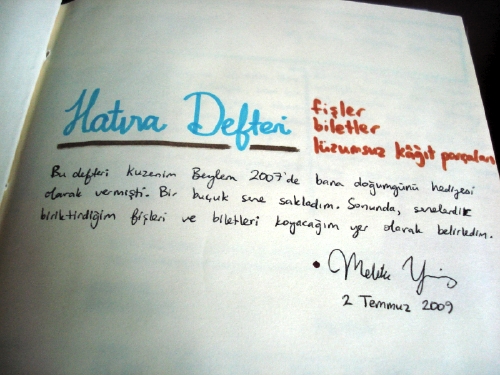 Hatıra Defteri
fişler
biletler
lüzumsuz kâğıt parçaları
Bu defteri kuzenim Beylem 2007'de bana doğumgünü hediyesi
olarak vermişti. Bir buçuk sene sakladım. Sonunda, senelerdir
biriktirdiğim fişleri ve biletleri koyacağım yer olarak belirledim.
2 Temmuz 2009